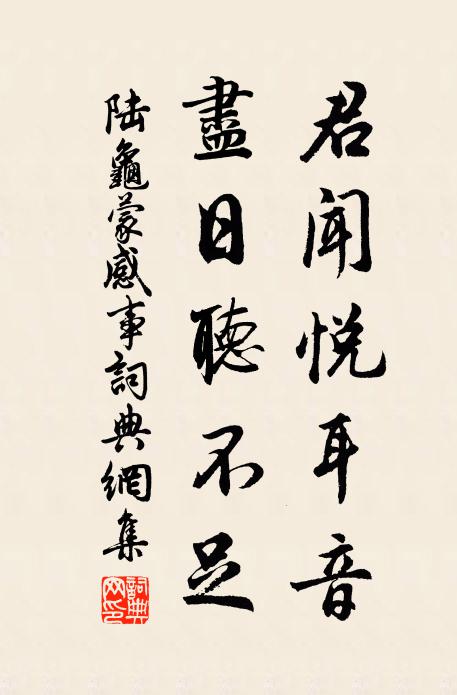 君聞悅耳音
盡日聽不足
陸龜蒙感事詞典網集
詞典網印